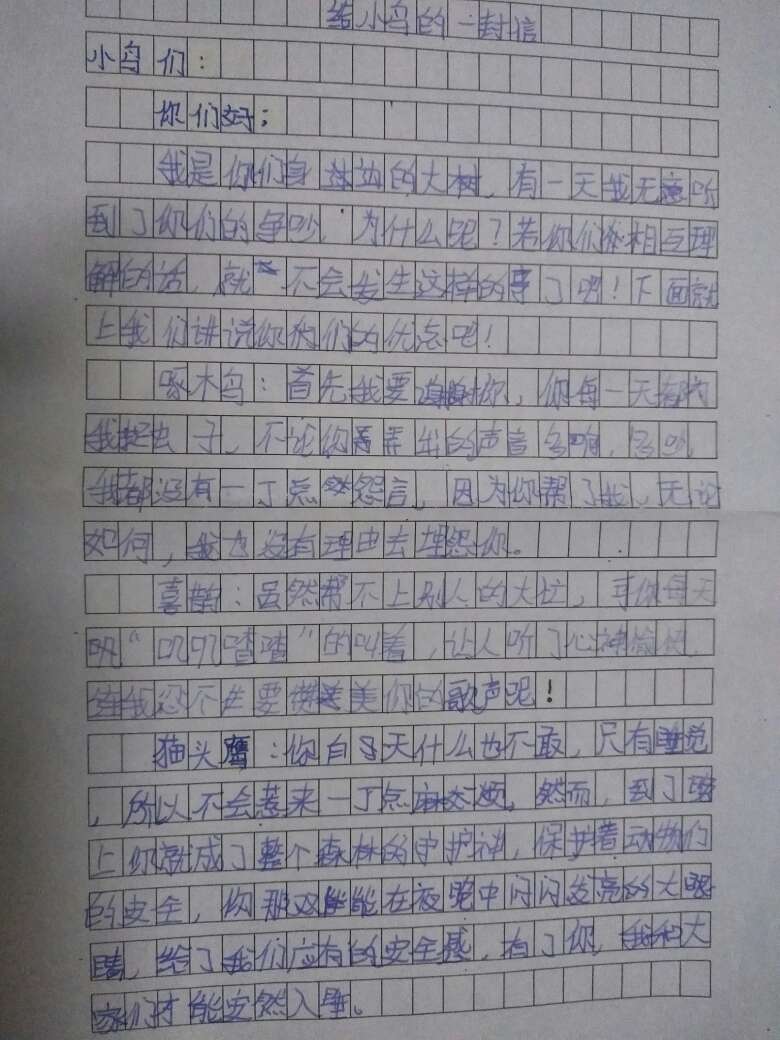 给小鸟的一封信
小鸟们：
你们好；
我是你们身边的大树，有一天我无意听
到了你们的争吵，为什么呢？若你们能相互理
解的话，就不会发生这样的事了吧！下面就
上我们讲说你们的优点吧！
啄木鸟：首先我要谢谢你，你每一天都为
我捉虫子，不论你弄出的声音多响，多吵，
我都没有一丁点怨言，因为你帮了我，无论
如何，我也没有理由去埋怨你。
喜鹊：虽然帮不上别人的大忙，可你每天
叽叽喳喳”的叫着，让人听了心神愉快，
连我忍不住要赞美你的歌声呢！
猫头鹰：你白天什么也不敢，只有睡觉
，所以不会惹来一丁点麻烦，然而，到了晚
上你就成了整个森林的守护神，保护着动物们
的安全，你那双能在夜晚中闪闪发亮的大眼
睛，给了我们应有的安全感，有了你，我和大
家们才能安然入睡。